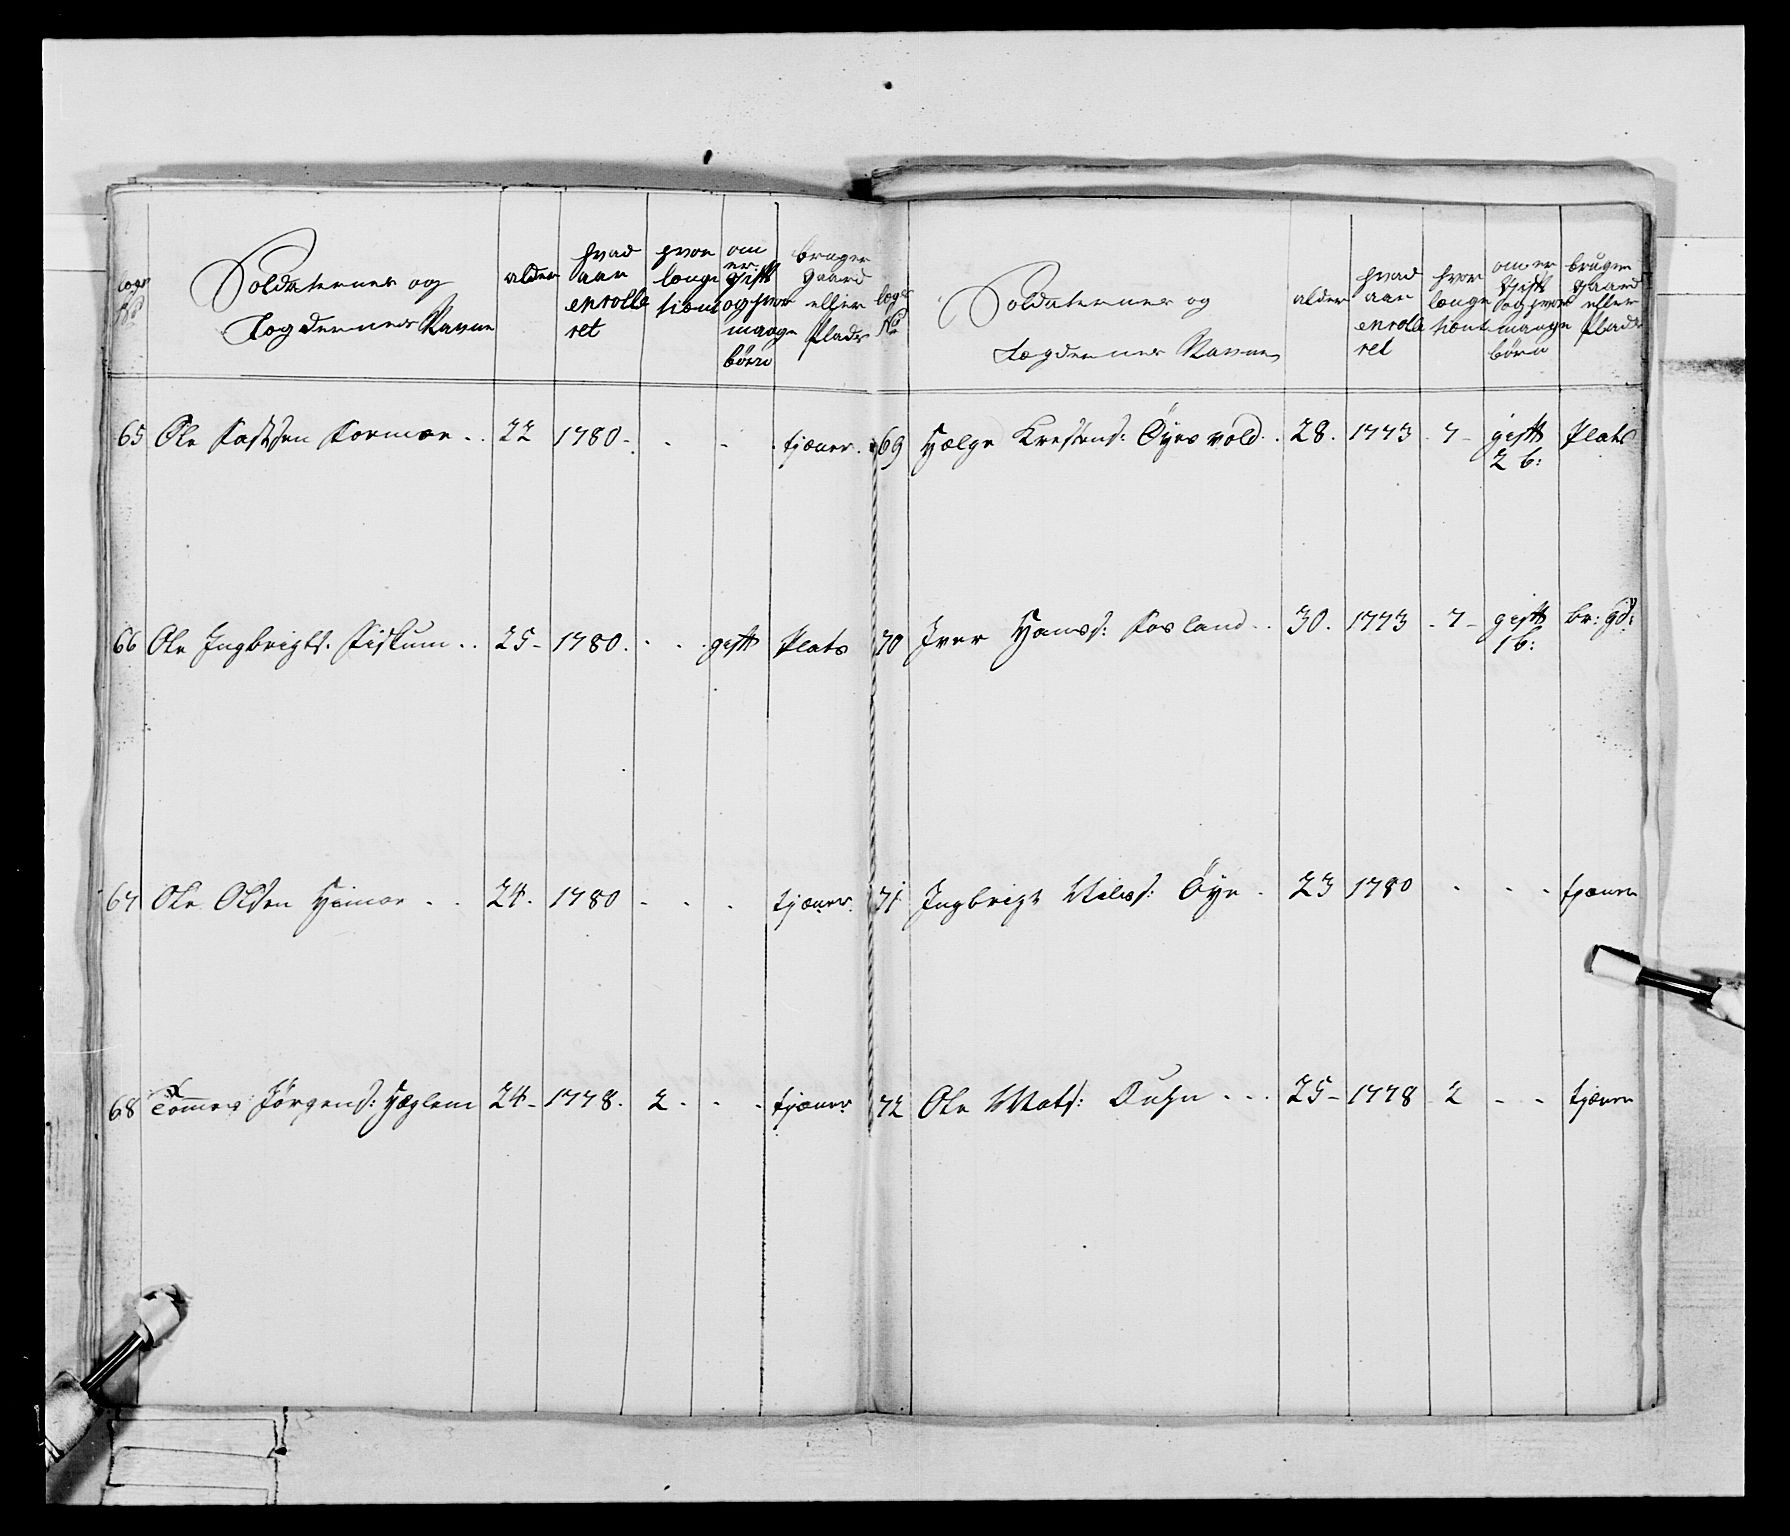 lægs No
Soldaternes og
Lægdernes Navne
alder
hvad aar enrolle ret
hvor længe tient
om er gift og hvor mange børn
bruger gaard eller Plads
65 Ole .. 22 1780 - . - . tjener.
66 Ole Ingbrigts: Fiskum .. 25 - 1780. . . gift Plats
67 Ole Olsen . . 24. 1780 . . . tjæner
68 Tomes Jørgens: Hæglem 24 - 1778. 2 . - . tjæner
lægs No
Soldaternes og
Lægdernes Navne
alder
hvad aar enrolle ret
hvor længe tient
om er gift og hvor mange børn
bruger Gaard eller Plads
69 Helge Krestens: Øyesvold . 28. 1773 . 7 - gift Plats
2 b:
70 Iver Hanss: Fosland .. 30. 1773 - 7 - gift br: gd:
1 b:
71 Ingbrigt Nilss: Øye . 23 1780 . . . tjener
72 Ole Mats: Duhn ... 25 - 1778 2 - - tjæner